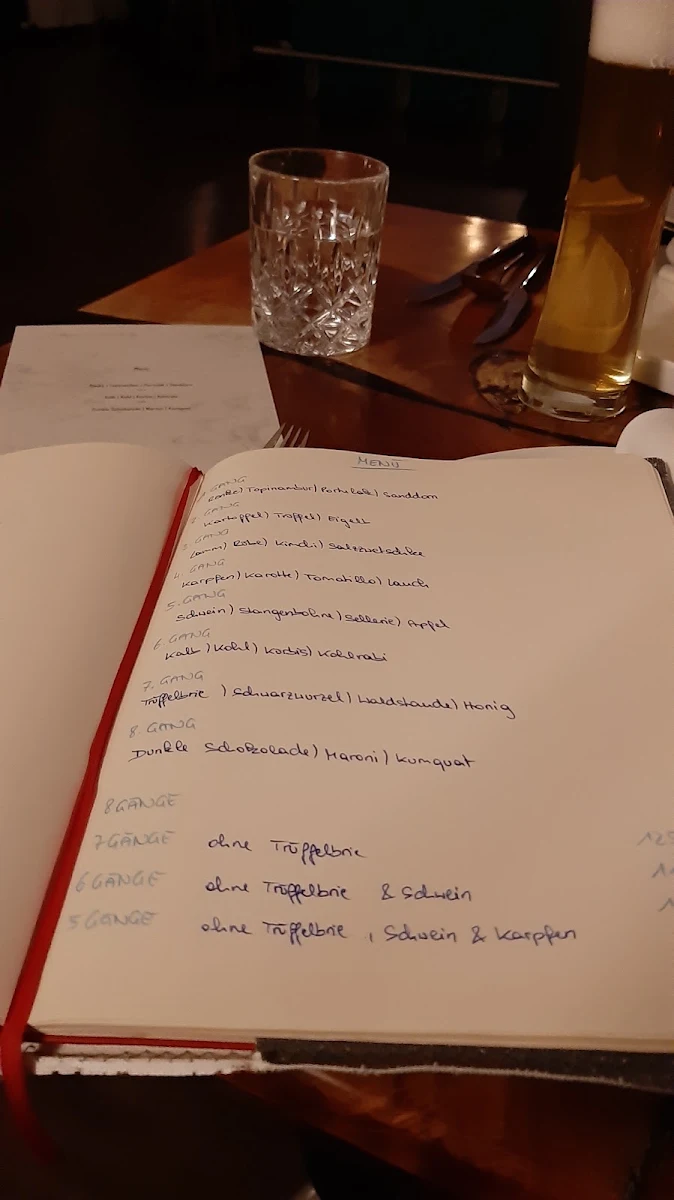 Menü
MENÜ
1. GANG
Topinambur | Portulak | Sanddorn
2. GANG
Kartoffel | Trüffel | Eigelb
3. GANG
Lamm | Rübe | Kimchi | Salzzwetschke
4. GANG
Karpfen | Karotte | Tomatillo | Lauch
5. GANG
Schwein | Stangenbohne | Sellerie | Apfel
6. GANG
Kalb | Kohl | Kürbis | Kohlrabi
7. GANG
Trüffelbrie | Schwarzwurzel | Waldstaude | Honig
8. GANG
Dunkle Schokolade | Maroni | Kumquat
8 GÄNGE
7 GÄNGE ohne Trüffelbrie
6 GÄNGE ohne Trüffelbrie & Schwein
5 GÄNGE ohne Trüffelbrie, Schwein & Karpfen